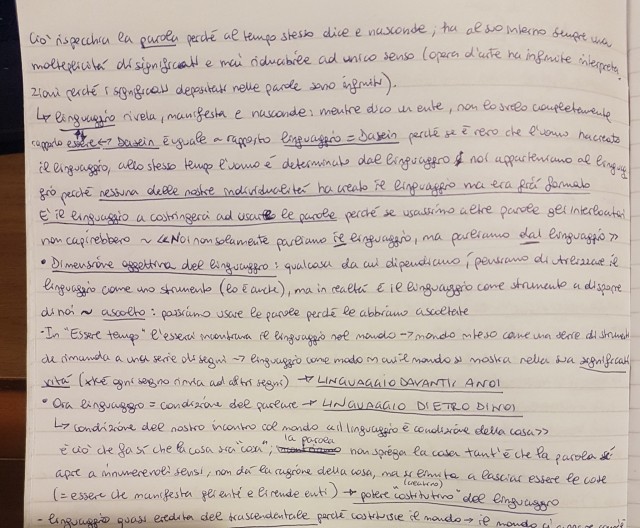 Ciò rispecchia la parola perché al tempo stesso dice e nasconde, ha al suo interno sempre una
molteplicità di significati e mai riducibile ad unico senso (opera d'arte ha infinite interpreta
zioni perché i significati depositati nelle parole sono infiniti).
↳ linguaggio rivela, manifesta e nasconde: mentre dico un ente, non lo svelo completamente
rapporto essere ↔ Dasein è uguale a rapporto linguaggio = Dasein perché se è vero che l'uomo ha creato
il linguaggio, allo stesso tempo l'uomo è determinato dal linguaggio noi apparteniamo al linguag
gio perché nessuna delle nostre individualità ha creato il linguaggio ma era già formato
E' il linguaggio a costringerci ad usare le parole perché se usassimo altre parole gli interlocutori
non capirebbero ~ «Noi non solamente parliamo il linguaggio, ma parliamo dal linguaggio»
• Dimensione oggettiva del linguaggio: qualcosa da cui dipendiamo, pensiamo di utilizzare il
linguaggio come uno strumento (lo è anche), ma in realtà è il linguaggio come strumento a disporre
di noi ~ ascolto: possiamo usare le parole perché le abbiamo ascoltate
- In "Essere tempo" l'esserci incontrava il linguaggio nel mondo → mondo inteso come una serie di strumenti
che rimanda a una serie di segni → linguaggio come modo in cui il mondo si mostra nella sua significati
vità (xkè ogni segno rinvia ad altri segni) → LINGUAGGIO DAVANTI A NOI
• Ora linguaggio = condizione del parlare → LINGUAGGIO DIETRO DI NOI
↳ condizione del nostro incontro col mondo «il linguaggio è condizione della cosa»
è ciò che fa sì che la cosa sia "cosa", la parola non spiega la cosa tant'è che la parola si
apre a innumerevoli sensi, non dà la ragione della cosa, ma si limita a lasciar essere le cose
(= essere che manifesta gli enti e li rende enti) → potere "costitutivo" (creativo) del linguaggio
- linguaggio quasi eredita del trascendentale perché costituisce il mondo → il mondo